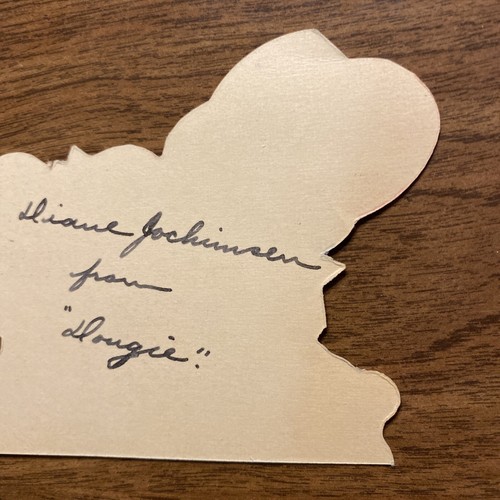 Diane Jochimsen
from
"Dougie".